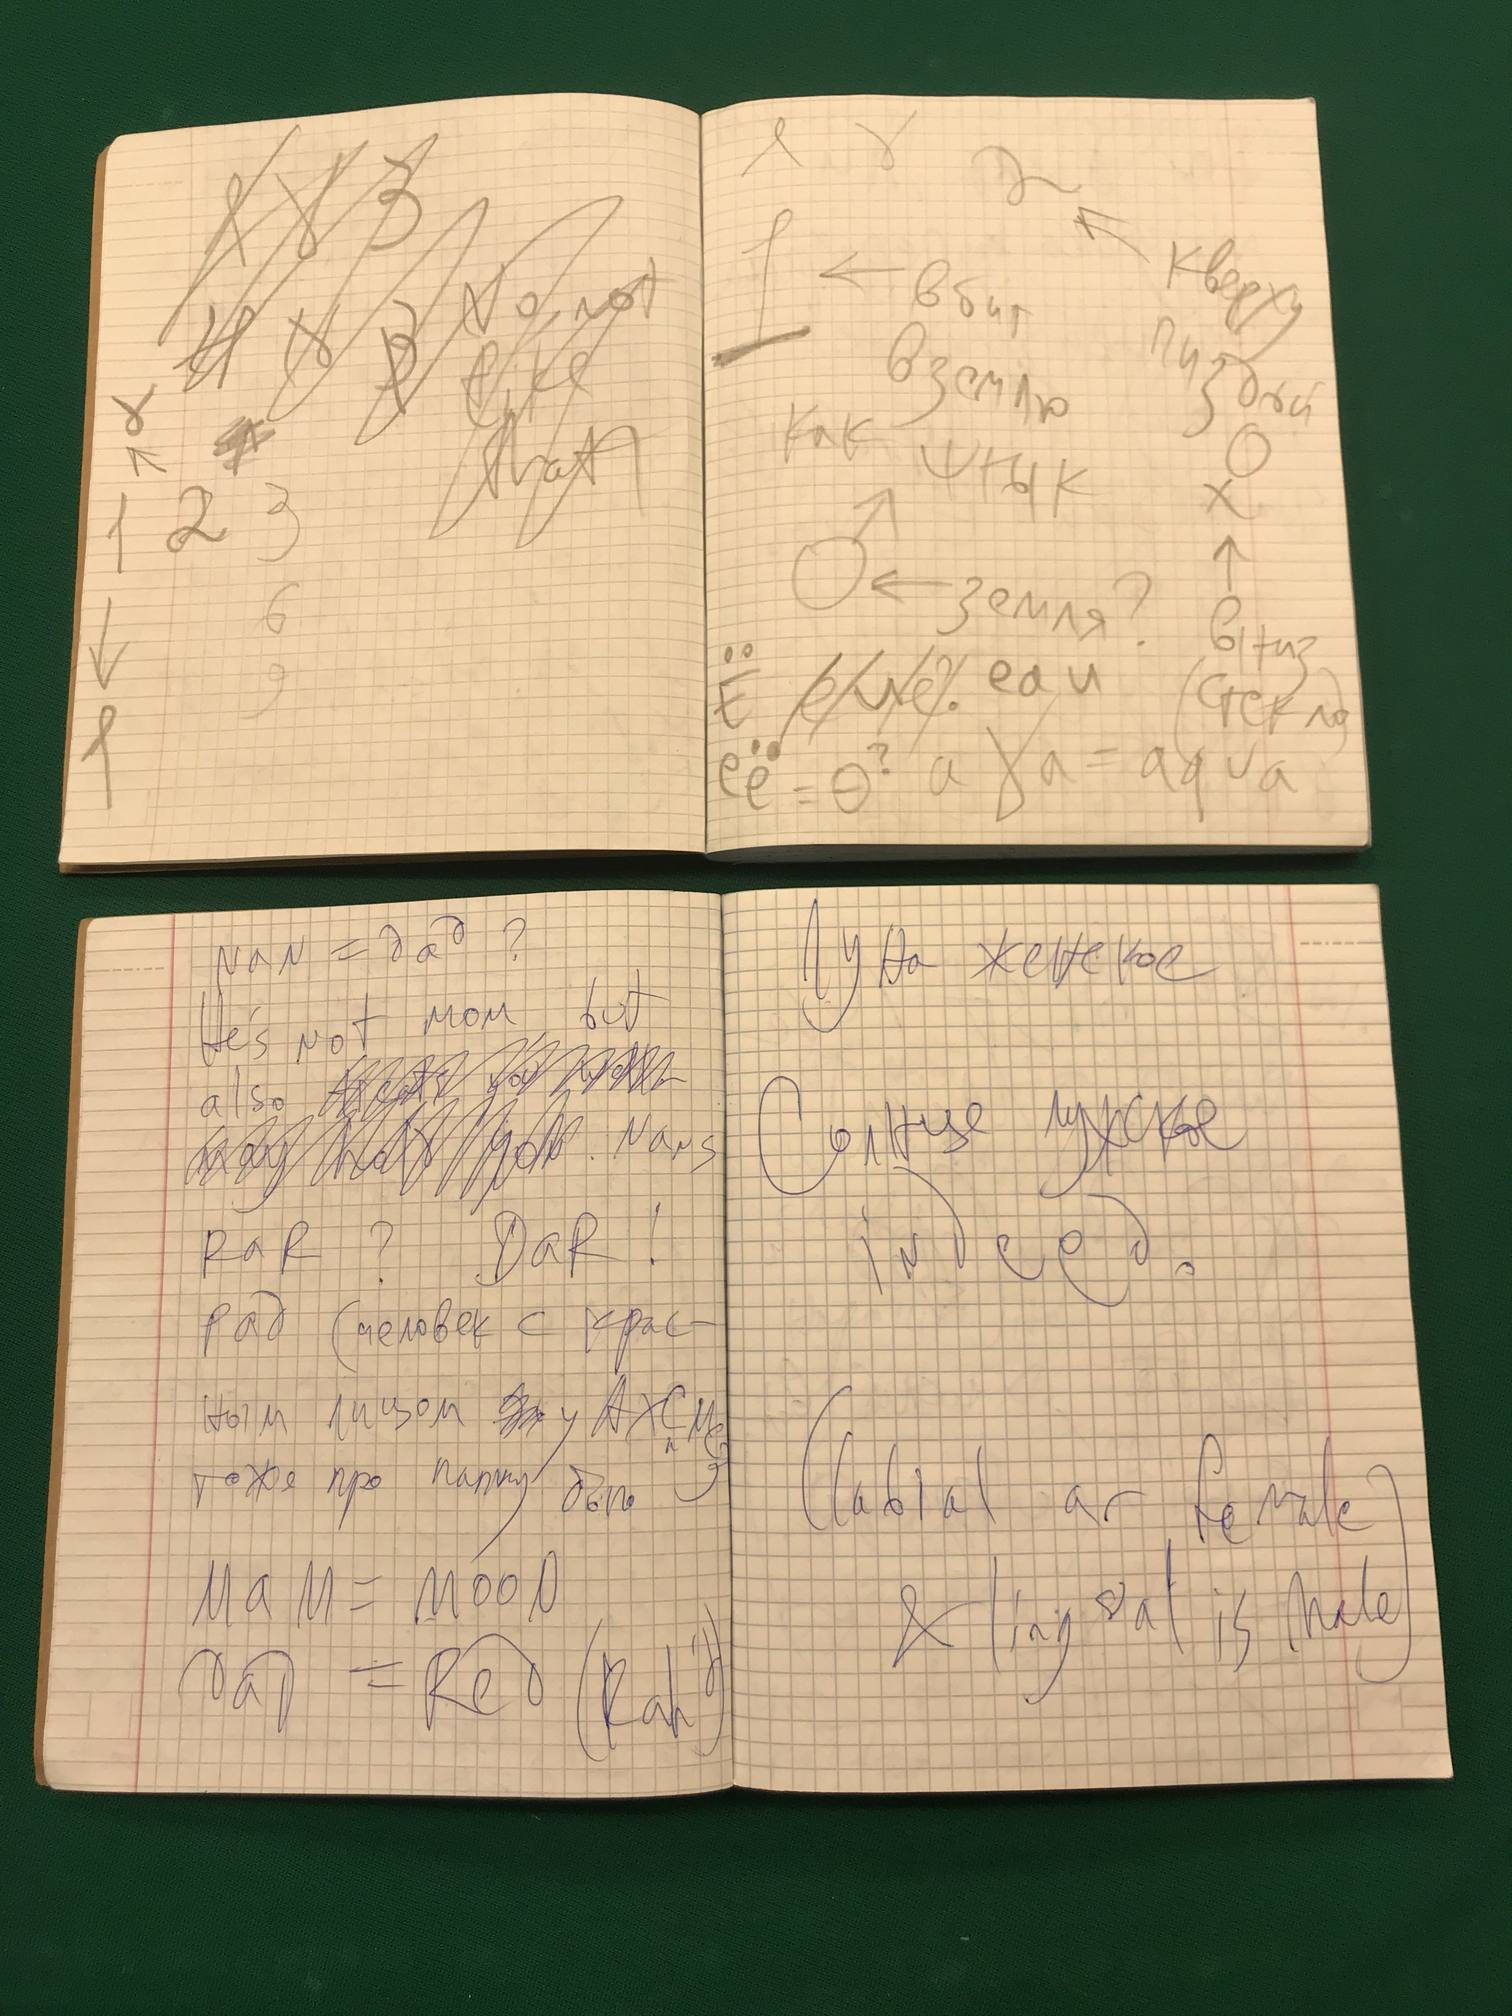 No, not
like
that
1 2 3
6
9
вбит
в землю
как штык
кверху
пиздой
земля?
вниз
(стекло)
Ё
eau
её = θ? a γ a = aqua
NaN = дад ?
He's not mom but
also
Nans
RaR ? DaR !
рад (человек с крас-
ным лицом у
тоже про папку было
MaM = MOON
дад = Red (Rah)
Луна женское
Солнце мужское
indeed.
(labial ar female
& lingual is male)